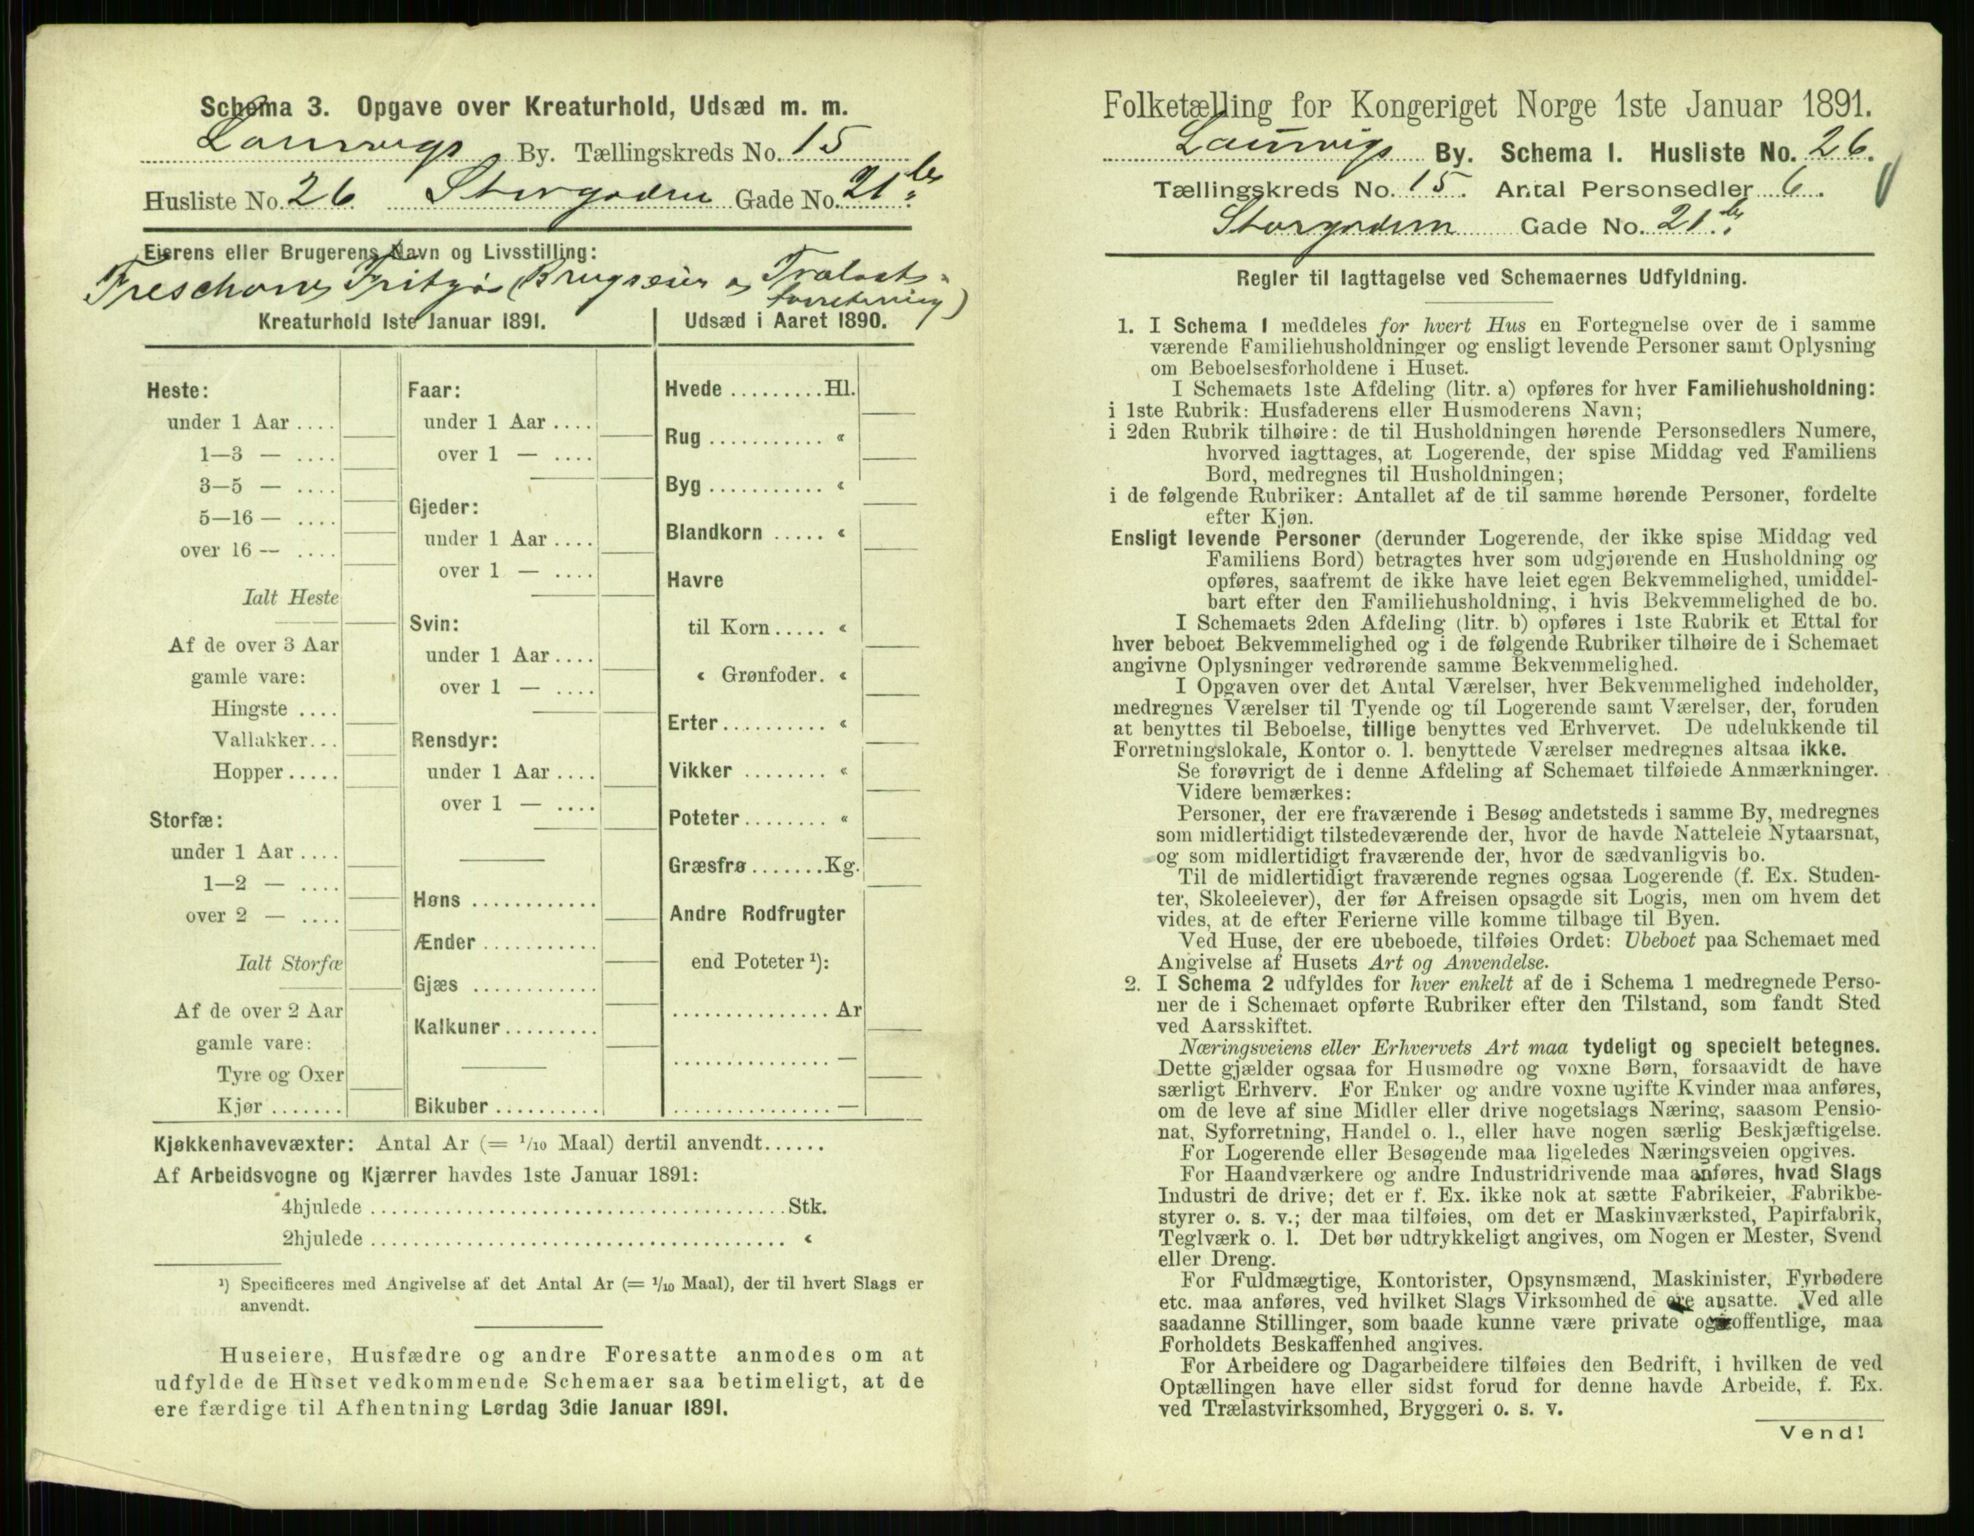 Schema 3. Opgave over Kreaturhold, Udsæd m. m.
Laurvigs By. Tællingskreds No. 15
Husliste No. 26 Storgaden Gade No. 21
Eierens eller Brugerens Navn og Livsstilling:
Treschows Fritzø (Brugseier og Trælast-
forretning)
Kreaturhold 1ste Januar 1891.
Heste:
under 1 Aar ....
1—3 — ....
3—5 — ....
5—16 — ....
over 16 — ....
Ialt Heste
Af de over 3 Aar
gamle vare:
Hingste ....
Vallakker...
Hopper.....
Storfæ:
under 1 Aar ....
1—2 — ....
over 2 — ....
Ialt Storfæ
Af de over 2 Aar
gamle vare:
Tyre og Oxer
Kjør .......
Faar:
under 1 Aar ....
over 1 — ....
Gjeder:
under 1 Aar ....
over 1 — ....
Svin:
under 1 Aar ....
over 1 — ....
Rensdyr:
under 1 Aar ....
over 1 — ....
Høns ............
Ænder ...........
Gjæs ............
Kalkuner.........
Bikuber ..........
Udsæd i Aaret 1890.
Hvede .........Hl.
Rug ........... «
Byg ........... «
Blandkorn ..... «
Havre
til Korn..... «
« Grønfoder. «
Erter.......... «
Vikker ........ «
Poteter........ «
Græsfrø .......Kg.
Andre Rodfrugter
end Poteter ¹):
............... Ar
............... —
............... —
Kjøkkenhavevæxter: Antal Ar (= 1/10 Maal) dertil anvendt......
Af Arbeidsvogne og Kjærrer havdes 1ste Januar 1891:
4hjulede ........................................Stk.
2hjulede ........................................ «
¹) Specificeres med Angivelse af det Antal Ar (= 1/10 Maal), der til hvert Slags er
anvendt.
Huseiere, Husfædre og andre Foresatte anmodes om at
udfylde de Huset vedkommende Schemaer saa betimeligt, at de
ere færdige til Afhentning Lørdag 3die Januar 1891.
Folketælling for Kongeriget Norge 1ste Januar 1891.
Laurvigs By. Schema 1. Husliste No. 26.
Tællingskreds No. 15. Antal Personsedler 6.
Storgaden Gade No. 21
Regler til Iagttagelse ved Schemaernes Udfyldning.
1. I Schema 1 meddeles for hvert Hus en Fortegnelse over de i samme
værende Familiehusholdninger og ensligt levende Personer samt Oplysning
om Beboelsesforholdene i Huset.
I Schemaets 1ste Afdeling (litr. a) opføres for hver Familiehusholdning:
i 1ste Rubrik: Husfaderens eller Husmoderens Navn;
i 2den Rubrik tilhøire: de til Husholdningen hørende Personsedlers Numere,
hvorved iagttages, at Logerende, der spise Middag ved Familiens
Bord, medregnes til Husholdningen;
i de følgende Rubriker: Antallet af de til samme hørende Personer, fordelte
efter Kjøn.
Ensligt levende Personer (derunder Logerende, der ikke spise Middag ved
Familiens Bord) betragtes hver som udgjørende en Husholdning og
opføres, saafremt de ikke have leiet egen Bekvemmelighed, umiddel-
bart efter den Familiehusholdning, i hvis Bekvemmelighed de bo.
I Schemaets 2den Afdeling (litr. b) opføres i 1ste Rubrik et Ettal for
hver beboet Bekvemmelighed og i de følgende Rubriker tilhøire de i Schemaet
angivne Oplysninger vedrørende samme Bekvemmelighed.
I Opgaven over det Antal Værelser, hver Bekvemmelighed indeholder,
medregnes Værelser til Tyende og til Logerende samt Værelser, der, foruden
at benyttes til Beboelse, tillige benyttes ved Erhvervet. De udelukkende til
Forretningslokale, Kontor o. l. benyttede Værelser medregnes altsaa ikke.
Se forøvrigt de i denne Afdeling af Schemaet tilføiede Anmærkninger.
Videre bemærkes:
Personer, der ere fraværende i Besøg andetsteds i samme By, medregnes
som midlertidigt tilstedeværende der, hvor de havde Natteleie Nytaarsnat,
og som midlertidigt fraværende der, hvor de sædvanligvis bo.
Til de midlertidigt fraværende regnes ogsaa Logerende (f. Ex. Studen-
ter, Skoleelever), der før Afreisen opsagde sit Logis, men om hvem det
vides, at de efter Ferierne ville komme tilbage til Byen.
Ved Huse, der ere ubeboede, tilføies Ordet: Ubeboet paa Schemaet med
Angivelse af Husets Art og Anvendelse.
2. I Schema 2 udfyldes for hver enkelt af de i Schema 1 medregnede Perso-
ner de i Schemaet opførte Rubriker efter den Tilstand, som fandt Sted
ved Aarsskiftet.
Næringsveiens eller Erhvervets Art maa tydeligt og specielt betegnes.
Dette gjælder ogsaa for Husmødre og voxne Børn, forsaavidt de have
særligt Erhverv. For Enker og andre voxne ugifte Kvinder maa anføres,
om de leve af sine Midler eller drive nogetslags Næring, saasom Pensio-
nat, Syforretning, Handel o. l., eller have nogen særlig Beskjæftigelse.
For Logerende eller Besøgende maa ligeledes Næringsveien opgives.
For Haandværkere og andre Industridrivende maa anføres, hvad Slags
Industri de drive; det er f. Ex. ikke nok at sætte Fabrikeier, Fabrikbe-
styrer o. s. v.; der maa tilføies, om det er Maskinværksted, Papirfabrik,
Teglværk o. l. Det bør udtrykkeligt angives, om Nogen er Mester, Svend
eller Dreng.
For Fuldmægtige, Kontorister, Opsynsmænd, Maskinister, Fyrbødere
etc. maa anføres, ved hvilket Slags Virksomhed de ere ansatte. Ved alle
saadanne Stillinger, som baade kunne være private og offentlige, maa
Forholdets Beskaffenhed angives.
For Arbeidere og Dagarbeidere tilføies den Bedrift, i hvilken de ved
Optællingen have eller sidst forud for denne havde Arbeide, f. Ex.
ved Trælastvirksomhed, Bryggeri o. s. v.
Vend!